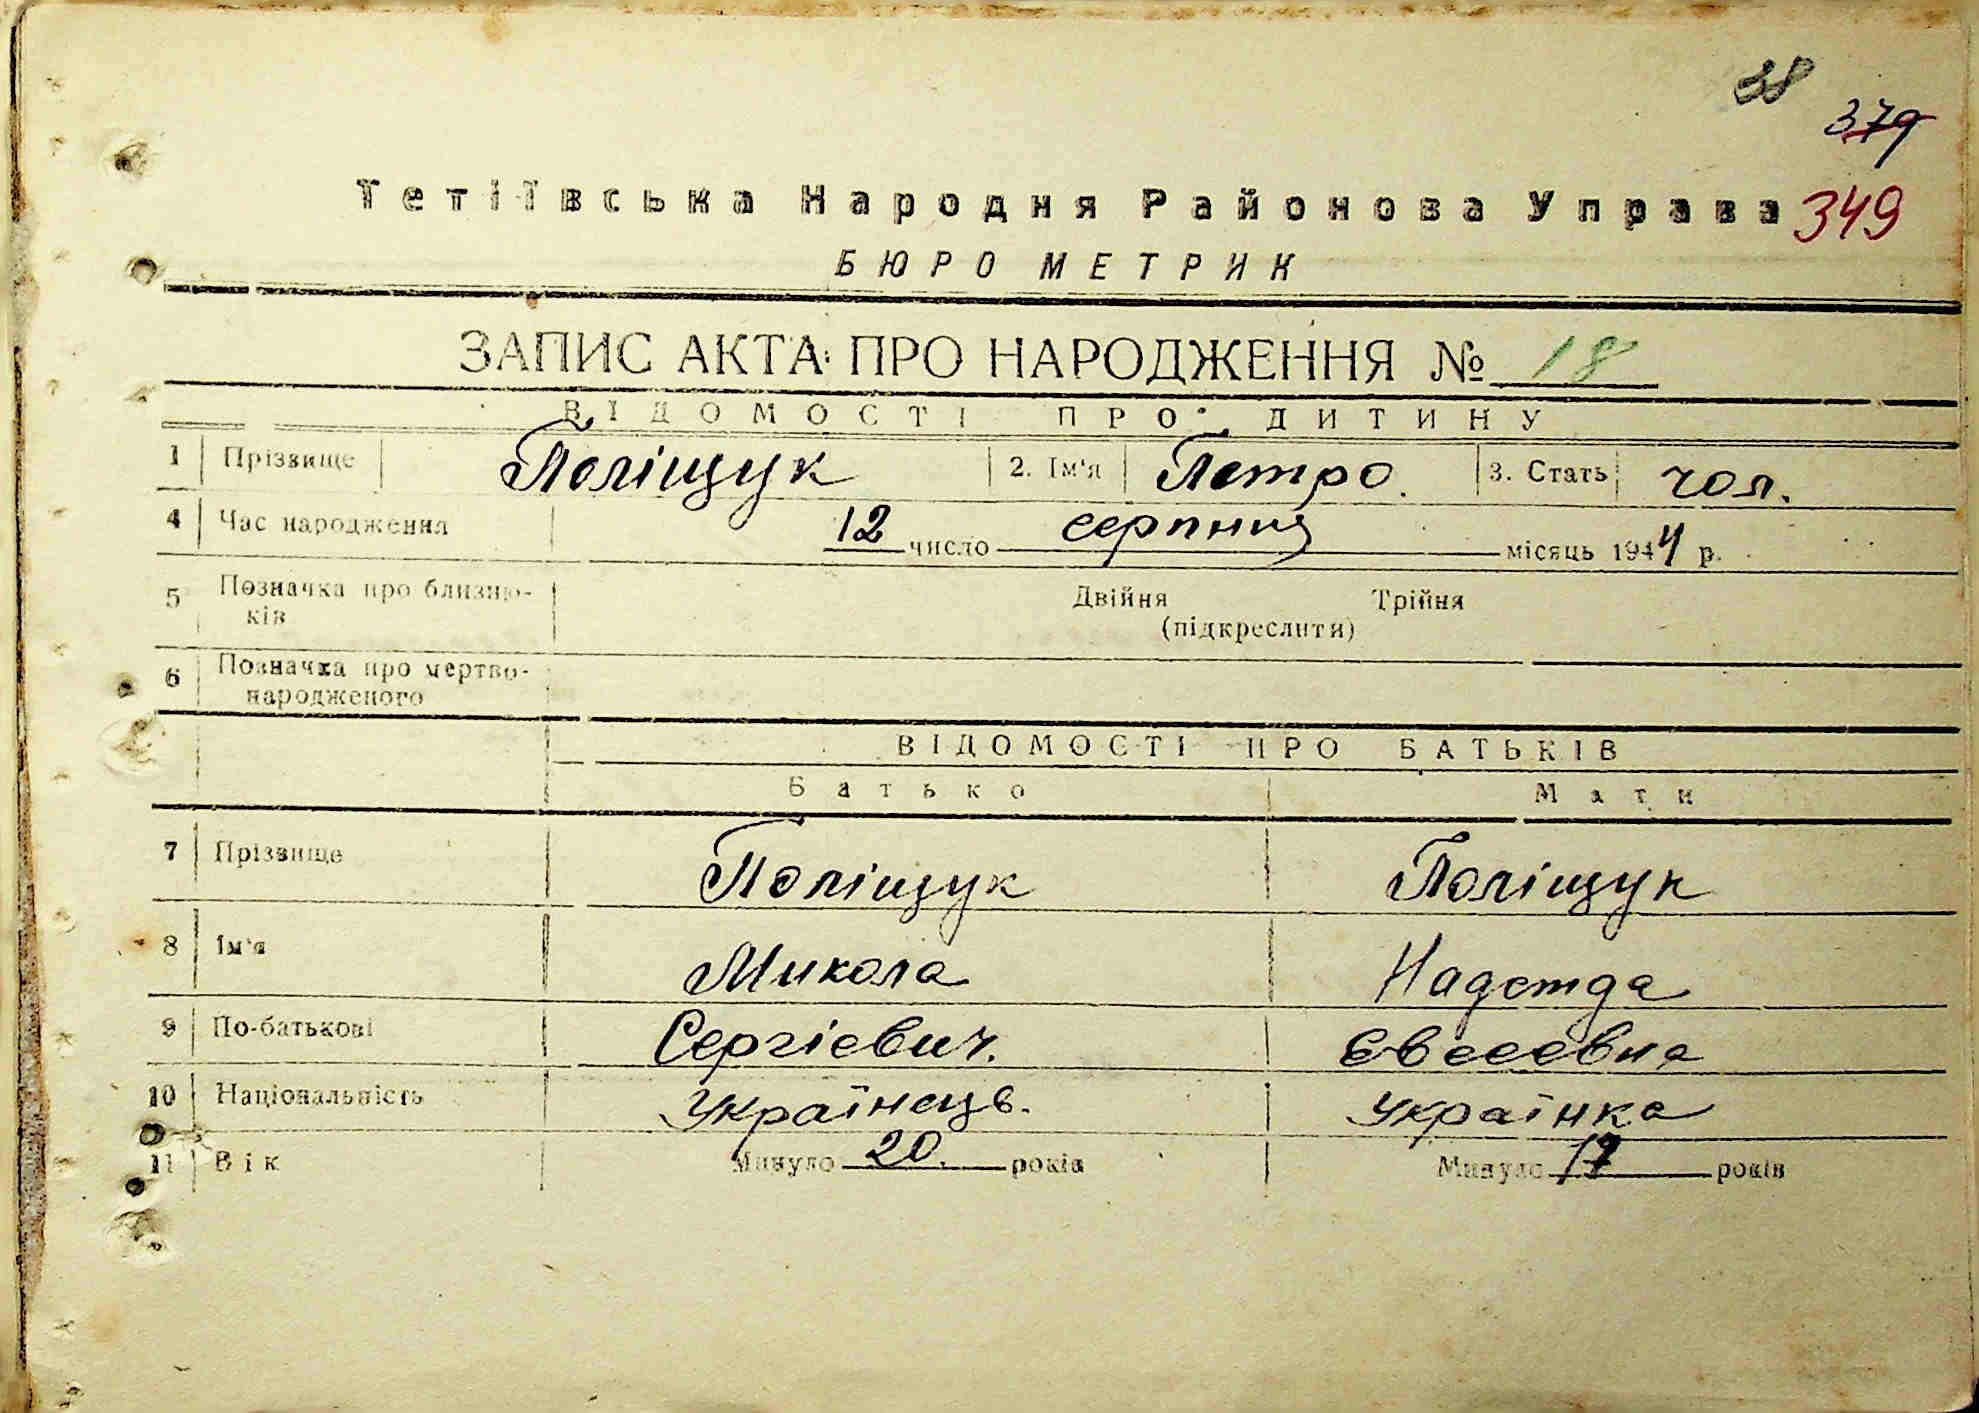 38
379
Тетіївська Народня Районова Управа 349
БЮРО МЕТРИК
ЗАПИС АКТА ПРО НАРОДЖЕННЯ № 18
ВІДОМОСТІ ПРО ДИТИНУ
1 Прізвище Поліщук 2. Ім'я Петро. 3. Стать чол.
4 Час народження 12 число серпния місяць 1944 р.
5 Позначка про близню-
ків Двійня Трійня
(підкреслити)
6 Позначка про мертво-
народженого
ВІДОМОСТІ ПРО БАТЬКІВ
Батько Мати
7 Прізвище Поліщук Поліщук
8 Ім'я Микола Надежда
9 По-батькові Сергієвич. Євсеєвна
10 Національність Українець. Українка
11 Вік Минуло 20. років Минуло 17 років